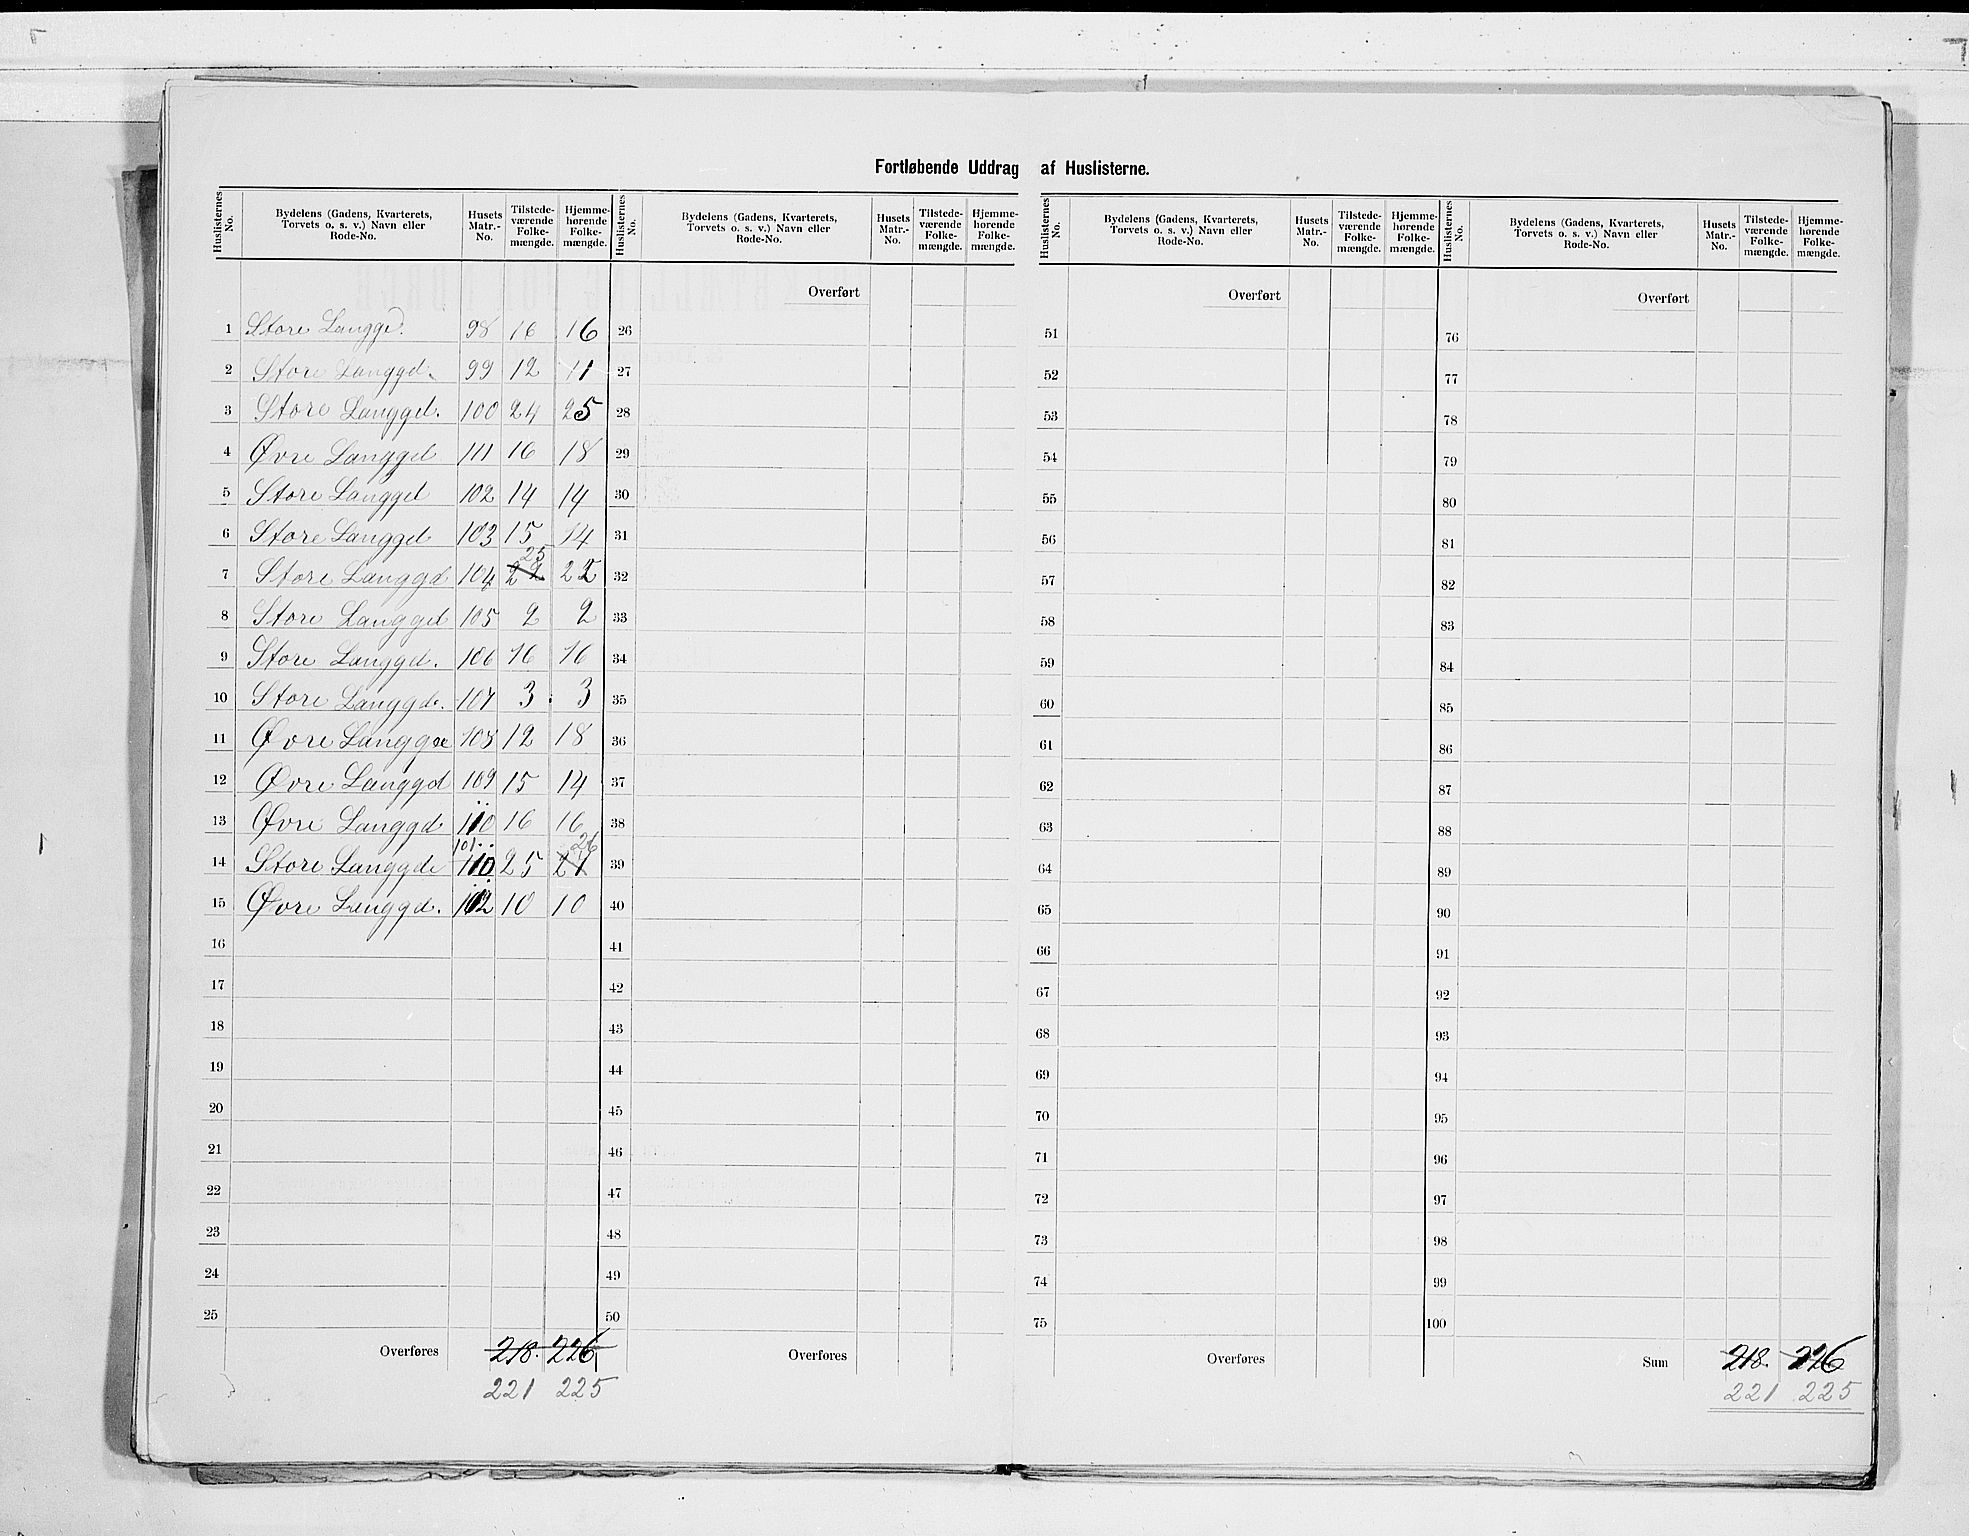 Fortløbende Uddrag af Huslisterne.
Huslisternes No. Bydelens (Gadens, Kvarterets, Torvets o. s. v.) Navn eller Rode-No. Husets Matr.-No. Tilstedeværende Folkemængde. Hjemmehørende Folkemængde.
Huslisternes No. Bydelens (Gadens, Kvarterets, Torvets o. s. v.) Navn eller Rode-No. Husets Matr.-No. Tilstedeværende Folkemængde. Hjemmehørende Folkemængde.
Huslisternes No. Bydelens (Gadens, Kvarterets, Torvets o. s. v.) Navn eller Rode-No. Husets Matr.-No. Tilstedeværende Folkemængde. Hjemmehørende Folkemængde.
Huslisternes No. Bydelens (Gadens, Kvarterets, Torvets o. s. v.) Navn eller Rode-No. Husets Matr.-No. Tilstedeværende Folkemængde. Hjemmehørende Folkemængde.
Overført Overført Overført
1 Store Langgd. 98 16 16 26 51 76
2 Store Langgd. 99 12 11 27 52 77
3 Store Langgd. 100 24 25 28 53 78
4 Øvre Langgd 111 16 18 29 54 79
5 Store Langgd 102 14 14 30 55 80
6 Store Langgd 103 15 14 31 56 81
25
7 Store Langgd 104 22 22 32 57 82
8 Store Langgd 105 2 2 33 58 83
9 Store Langgd. 106 16 16 34 59 84
10 Store Langgd. 107 3 3 35 60 85
11 Øvre Langgd 108 12 18 36 61 86
12 Øvre Langgd 109 15 14 37 62 87
13 Øvre Langgd 110 16 16 38 63 88
101 26
14 Store Langgde 110 25 27 39 64 89
15 Øvre Langgd. 102 10 10 40 65 90
16 41 66 91
17 42 67 92
18 43 68 93
19 44 69 94
20 45 70 95
21 46 71 96
22 47 72 97
23 48 73 98
24 49 74 99
25 50 75 100
Overføres 218. 226 Overføres Overføres Sum 218. 226
221 225 221 225